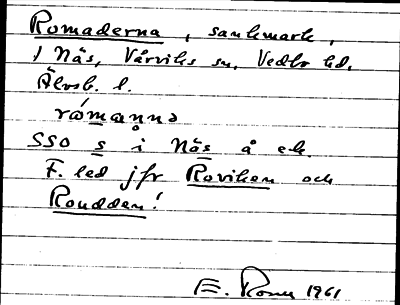 Romaderna, sankmark,
1 Näs, Vårviks sn, Vedbo hd.
Älvsb. l.
rómanna
SSO s i Näs å ek.
F. led jfr Roviken och
Roudden!
1961